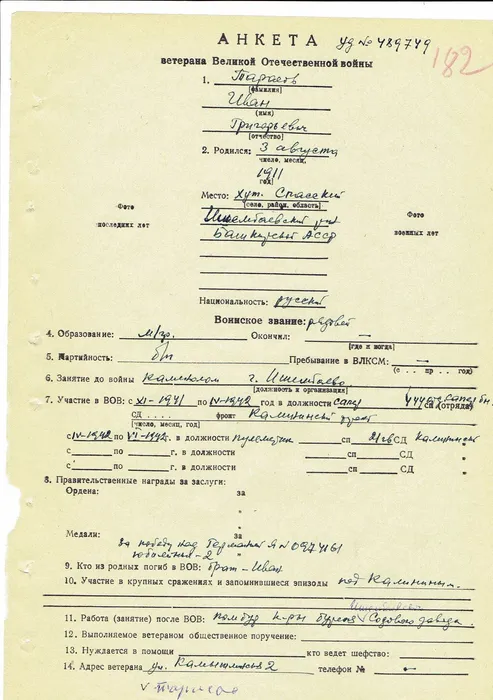 АНКЕТА уд № 489749
182
ветерана Великой Отечественной войны
1. Тараев
[фамилия]
Иван
(имя)
Григорьевич
[отчество]
2. Родился: 3 августа
число, месяц,
1911
год]
Место: хут. Спасский
[село, район, область]
Ишимбаевский
Башкирской АССР
Фото
последних лет
Фото
военных лет
Национальность: русский
Воинское звание: рядовой
4. Образование: м/гр. Окончил: —
[где и когда]
5. Партийность: б/п Пребывание в ВЛКСМ: —
(с . . . пр . . . год)
6. Занятие до войны г. Ишимбаево
[должность и организация]
7. Участие в ВОВ: с XI-1941 по IV-1942 год в должности сапер сп (отряде)
СД .... фронт Калининский фронт
[число, месяц, год)
с IV-1942 по VI-1942 г. в должности сп 21 гв СД Калининский
с по г. в должности сп СД "
с по г. в должности сп СД "
8. Правительственные награды за заслуги:
Ордена: за
"
"
Медали: за
за победу над Германией № 0974161
юбилейных - 2
9. Кто из родных погиб в ВОВ: брат - Иван
10. Участие в крупных сражениях и запомнившиеся эпизоды под Калинином.
11. Работа (занятие) после ВОВ: помбур Содового завода.
12. Выполняемое ветераном общественное поручение:
13. Нуждается в помощи кто ведет шефство:
14. Адрес ветерана ул. 2 телефон № —